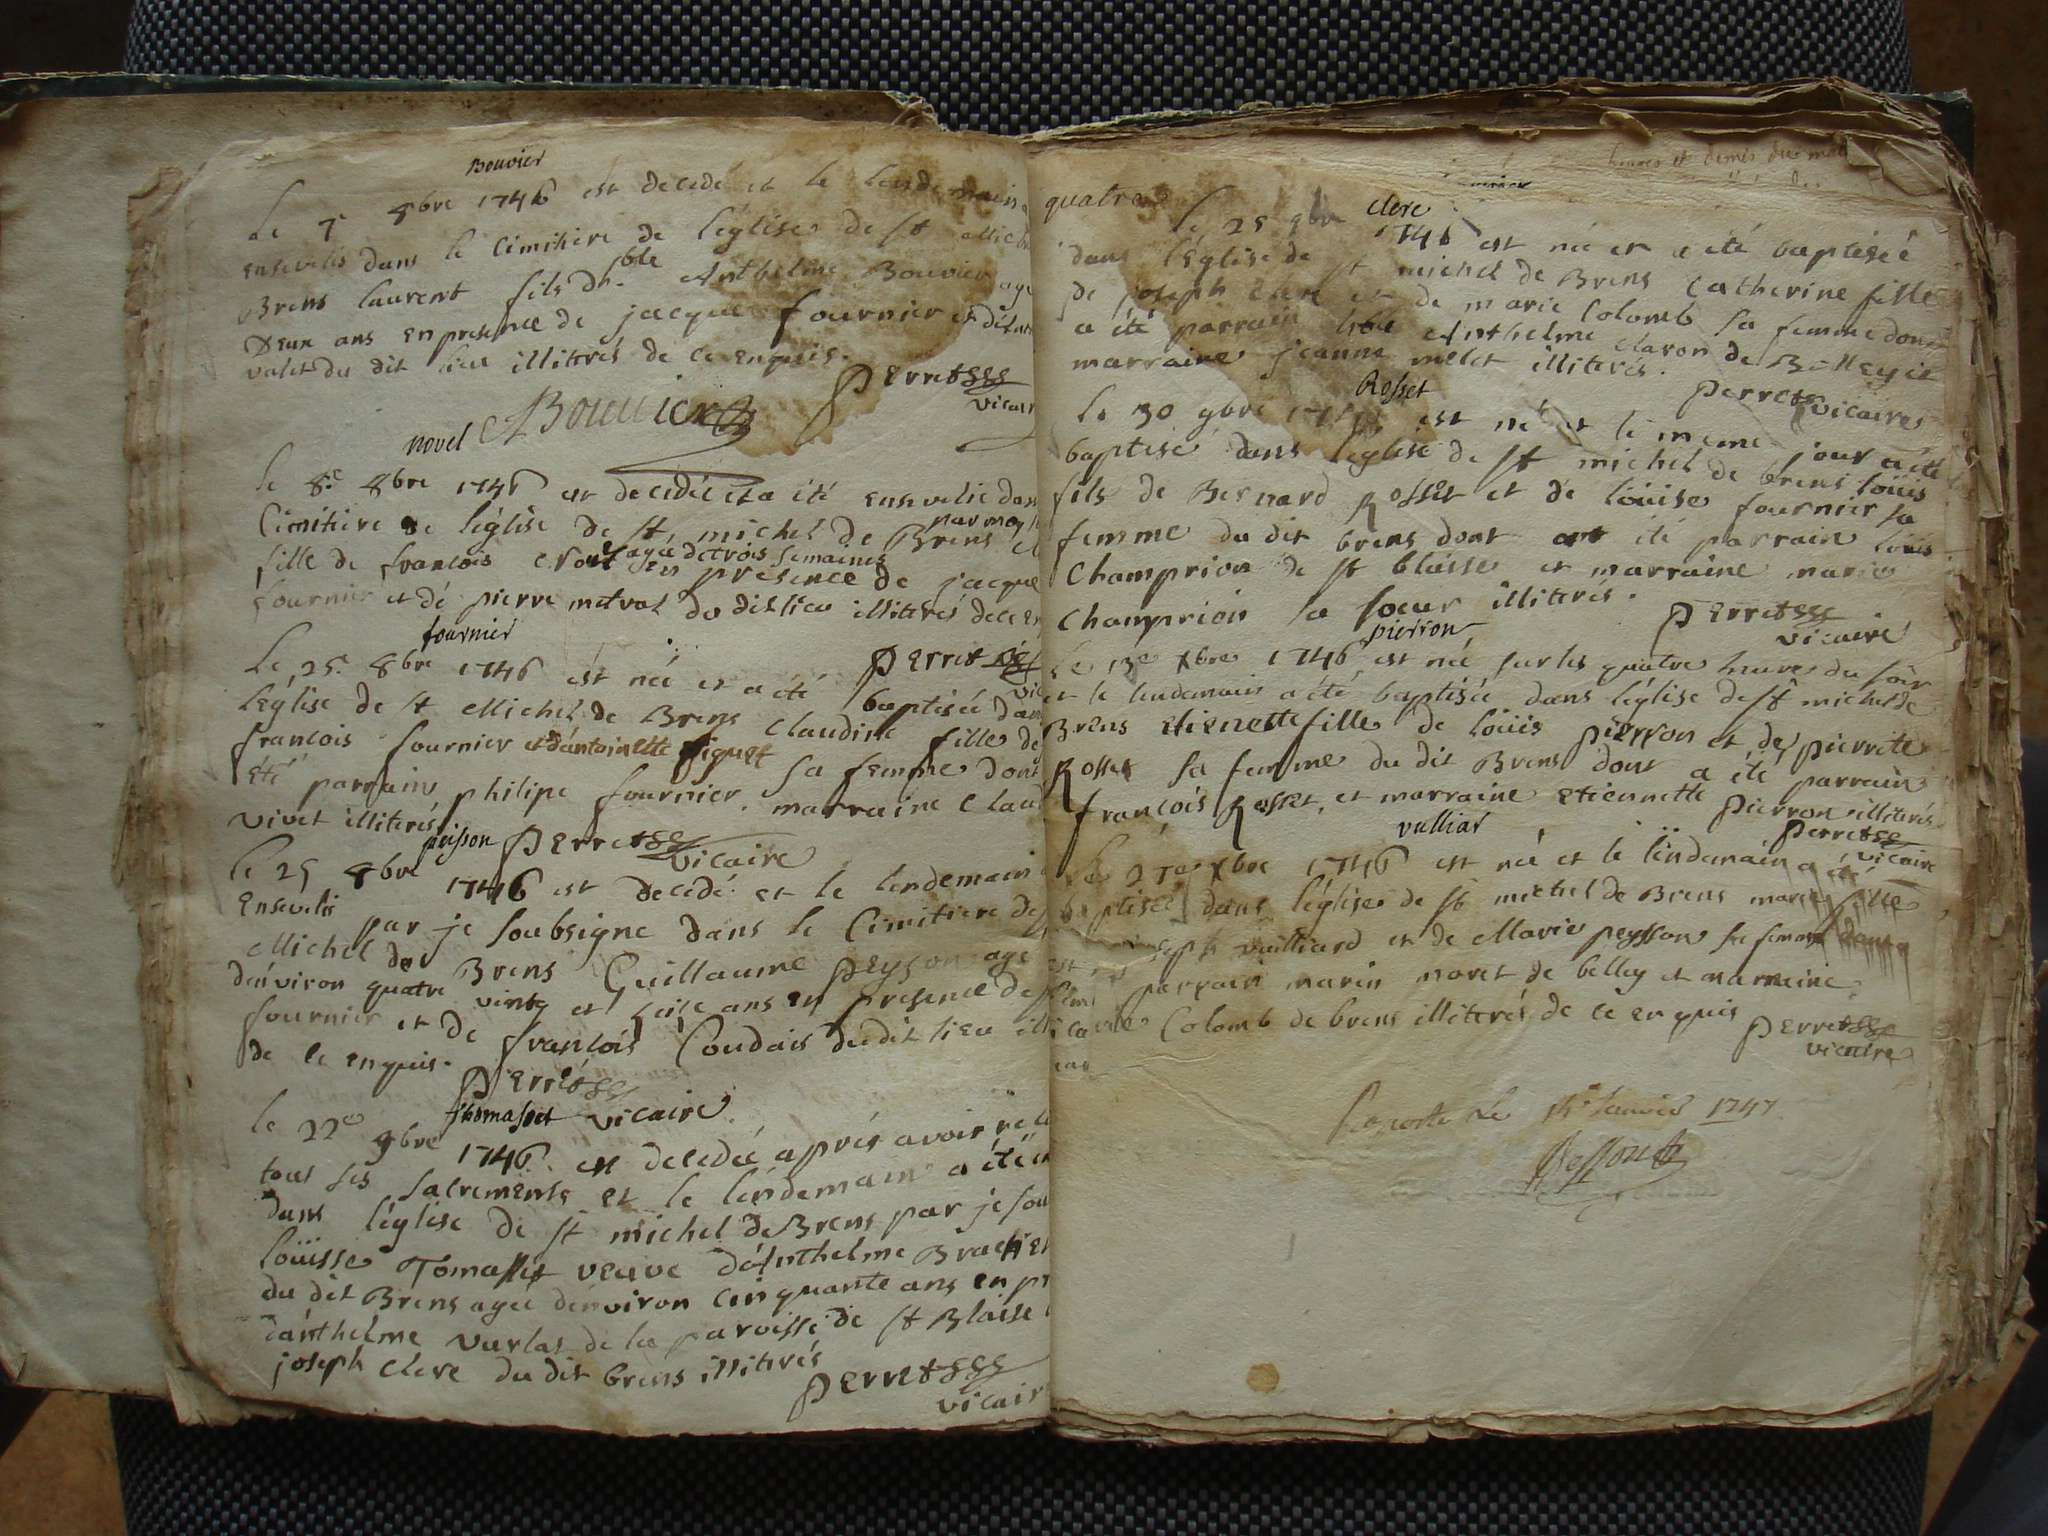 Bouvier
Le 7e 8bre 1746 est decedé et le lendemain
ensevelis dans le cimitiere de l'église de st Miche
Brens laurent fils d'h.ble Anthelme Bouvier age
Deux ans en presence de jacque fournier et
valet du dit lieu illiterés de ce enquis.
Perret
vicair
ABouvier
novel
le 8.e 8bre 1746 est decedée et a été ensevelie dan
Cimitiere de l'église de st michel de Brens
fille de francois agée de trois semaines
en presence de jacque
fournier et dé pierre du dit lieu illiterés de ce en
fournier
Perret
vic
Le 25.e 8bre 1746 est née et a été baptisée dan
l'église de st Michel de Brens Claudine fille de
francois fournier et d'antoinette figuet sa femme dont
été parrain philipe fournier marraine Claud
vivet illiterés
Perret
vicaire
peisson
le 25 8bre 1746 est decedé et le lendemain
Ensevelis par je soubsigne dans le Cimitiere de
Michel de Brens Guillaume Peyson age
d'environ quatre vingt et ans en presence de
fournier et de francois Coudais du dit lieu illi
de ce enquis.
Perret
vicaire
thomasset
le 22e 9bre 1746. est decedée aprés avoir recu
tous ses sacrements et le lendemain a été en
dans l'église de st michel de Brens par je sou
loüisse Tomasset veuve d'Anthelme
du dit Brens agée d'environ cinquante ans en pr
d'anthelme varlas de la paroisse de st Blaise
joseph clerc du dit brens illiterés
Perret
vicair
heures et demis du mat
quatre
clerc
le 25 9bre 1746 est née et a été baptisée
dans l'église de st michel de Brens Catherine fille
de joseph clerc et de marie Colomb sa femme dont
a été parrain hble Anthelme claron de Belley et
marraine jeanne melet illiterés.
Perret vicaire
Rosset
Le 30 9bre 1746 est né et le meme jour a été
baptisé dans l'église de st michel de brens loüis
fils de Bernard Rosset et de loüise fournier sa
femme du dit brens dont ont été parrain loüis
Champrion de st blaisse et marraine marie
Champrion sa soeur illiterés.
Perret
vicaire
pierron
Le 13e Xbre 1746 est née sur les quatre heure du soir
et le lendemain a été baptisée dans l'église de st michel de
Brens etienette fille de loüis pierron et de pierrete
Rosset sa femme du dit Brens dont a été parrain
françois Rosset, et marraine etiennette pierron illiterés
Perret
vicaire
vulliar
Le 27e Xbre 1746 est née et le lendemain a été
baptisée dans l'église de st michel de Brens marie fille
seph vulliard et de Marie peysson sa femme dont a
parrain marin moret de belley et marraine
Colomb de brens illiterés de ce enquis
Perret
vicaire
Janvier 1747